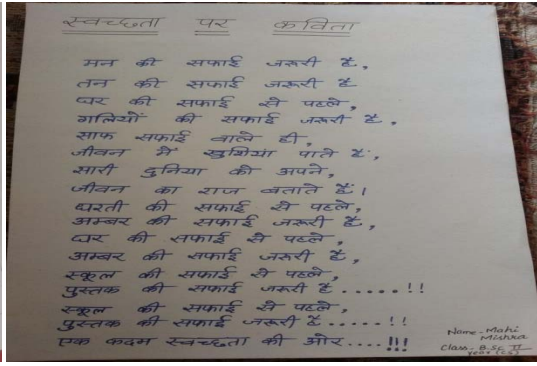 स्वच्छता पर कविता
मन की सफाई जरूरी है,
तन की सफाई जरूरी है
घर की सफाई से पहले,
गलियों की सफाई जरूरी है,
साफ सफाई वाले ही,
जीवन में खुशियां पाते हैं,
सारी दुनिया को अपने,
जीवन का राज बताते हैं।
धरती की सफाई से पहले,
अम्बर की सफाई जरूरी है,
घर की सफाई से पहले,
अम्बर की सफाई जरूरी है,
स्कूल की सफाई से पहले,
पुस्तक की सफाई जरूरी है.....!!
स्कूल की सफाई से पहले,
पुस्तक की सफाई जरूरी है.....!!
एक कदम स्वच्छता की ओर....!!!
Name - Mahi
Mishra
Class - B.Sc II
year (CS)